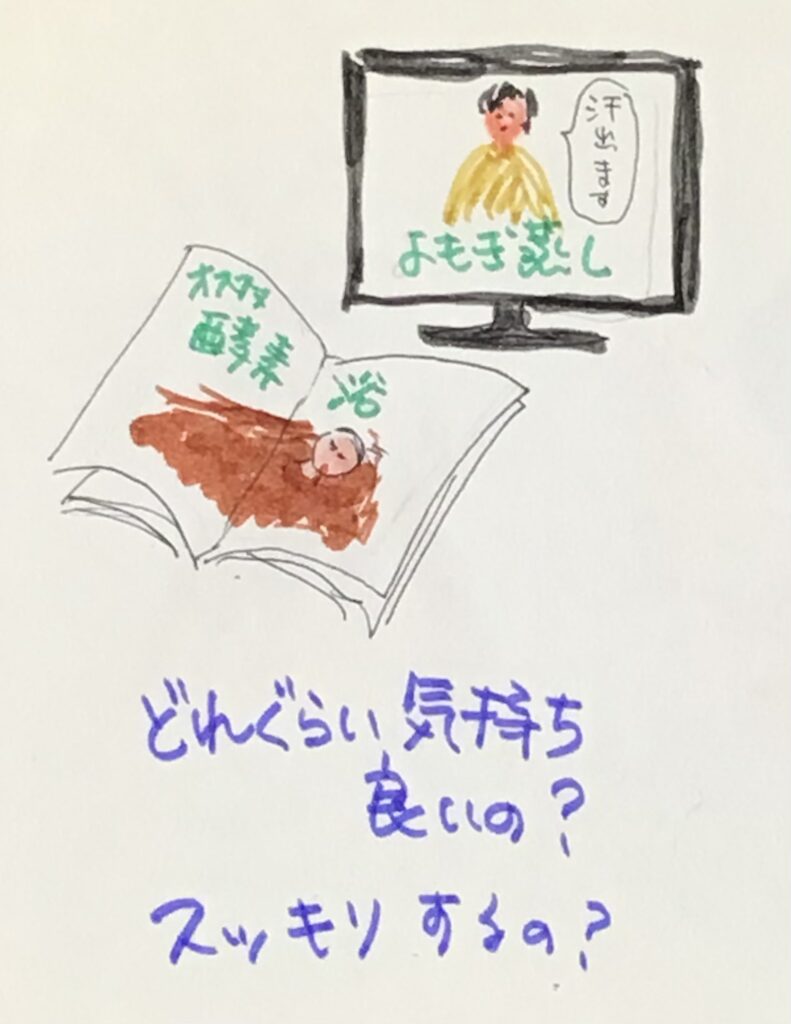 汗出ます
よもぎ蒸し
オススメ
酵素浴
どれぐらい気持ち
良いの?
スッキリするの?